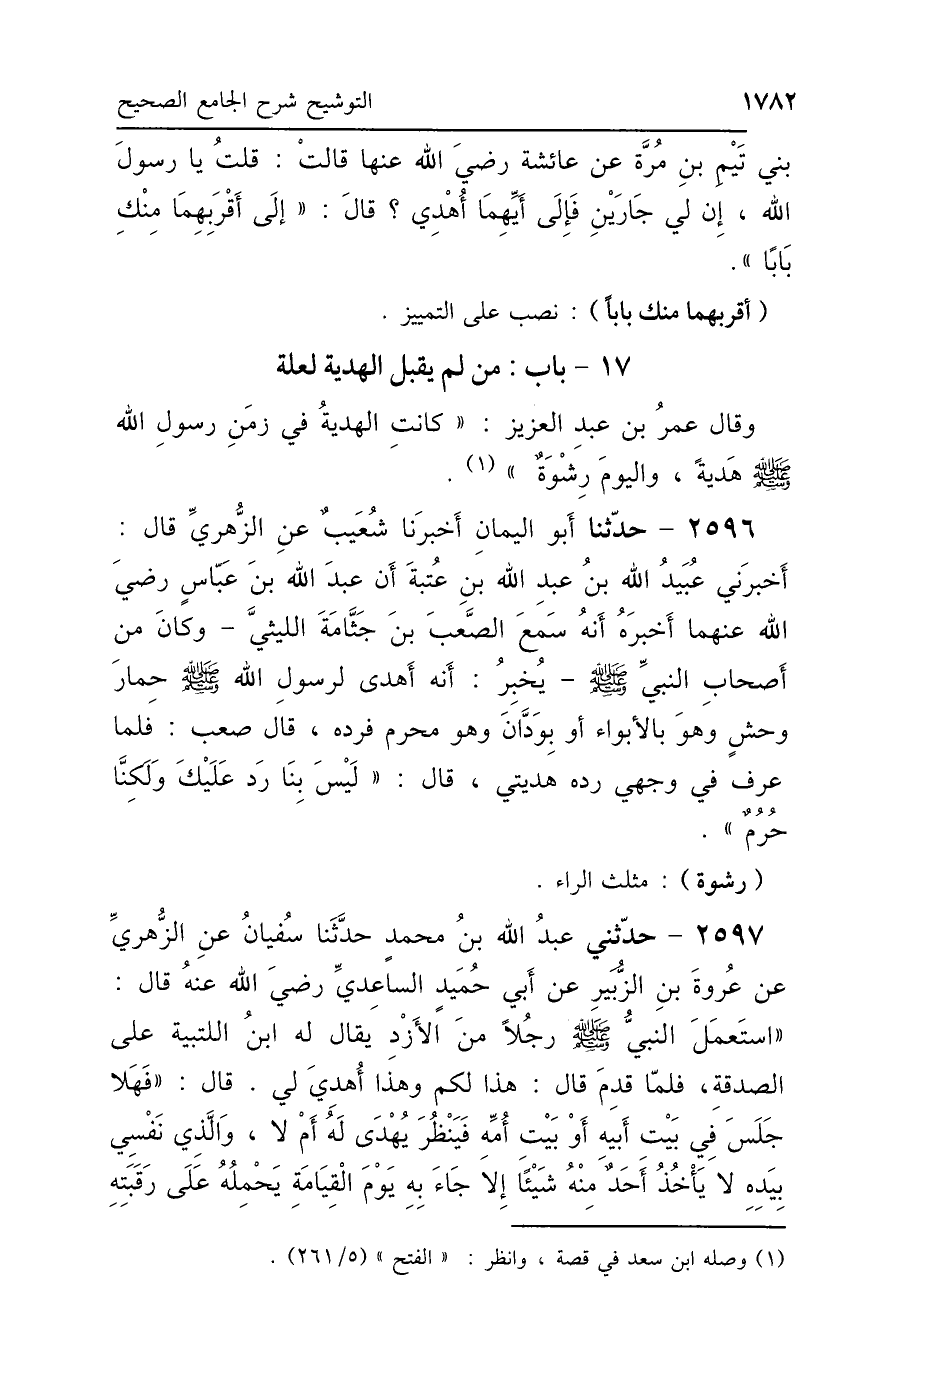 ١٧٨٢ التوشيح شرح الجامع الصحيح
بني تَيْمِ بنِ مُرَّة عن عائشة رضيَ الله عنها قالتْ : قلتُ يا رسولَ
الله ، إن لي جَارَيْنِ فَإلَى أَيِّهِمَا أُهْدِي ؟ قالَ : « إلَى أَقْرَبِهِمَا مِنْكِ
بَابًا ».
( أقربهما منك باباً ) : نصب على التمييز .
١٧ - باب : من لم يقبل الهدية لعلة
وقال عمرُ بن عبدِ العزيز : « كانتِ الهديةُ في زمَنِ رسولِ الله
ﷺ هَديةً ، واليومَ رِشْوَةٌ » (١) .
٢٥٩٦ - حدّثنا أبو اليمانِ أخبرَنا شُعَيبٌ عنِ الزُّهريِّ قال :
أَخبرَني عُبَيدُ الله بنُ عبدِ الله بنِ عُتبةَ أن عبدَ الله بنَ عَبّاسٍ رضيَ
الله عنهما أخبرَهُ أنهُ سَمعَ الصَّعبَ بنَ جَثَّامَةَ الليثيَّ - وكانَ من
أصحابِ النبيِّ ﷺ - يُخبِرُ : أنه أهدى لرسولِ الله ﷺ حمارَ
وحشٍ وهوَ بالأبواء أو بوَدَّانَ وهو محرم فرده ، قال صعب : فلما
عرف في وجهي رده هديتي ، قال : « لَيْسَ بِنَا رَد عَلَيْكَ وَلَكنَّا
حُرُمٌ » .
( رشوة ) : مثلث الراء .
٢٥٩٧ - حدّثني عبدُ الله بنُ محمدٍ حدَّثَنا سفُيانُ عنِ الزُّهريِّ
عن عُروةَ بنِ الزُّبَيرِ عن أبي حُمَيدٍ الساعديِّ رضيَ الله عنهُ قال :
«استَعمَلَ النبيُّ ﷺ رجُلاً منَ الأَزْدِ يقال له ابنُ اللتبية على
الصدقة، فلمّا قدمَ قال : هذا لكم وهذا أُهديَ لي . قال : «فَهَلا
جَلَسَ فِي بَيْتِ أَبيهِ أَوْ بَيْتِ أُمِّهِ فَيَنْظُرَ يُهْدَى لَهُ أمْ لا ، وَالَّذِي نَفْسِي
بيَدِهِ لا يَأْخُذُ أَحَدٌ مِنْهُ شَيْئًا إلا جَاءَ بِهِ يَوْمَ الْقِيَامَةِ يَحْمِلُهُ عَلَى رَقَبَتِهِ
(١) وصله ابن سعد في قصة ، وانظر : « الفتح » (٢٦١/٥) .